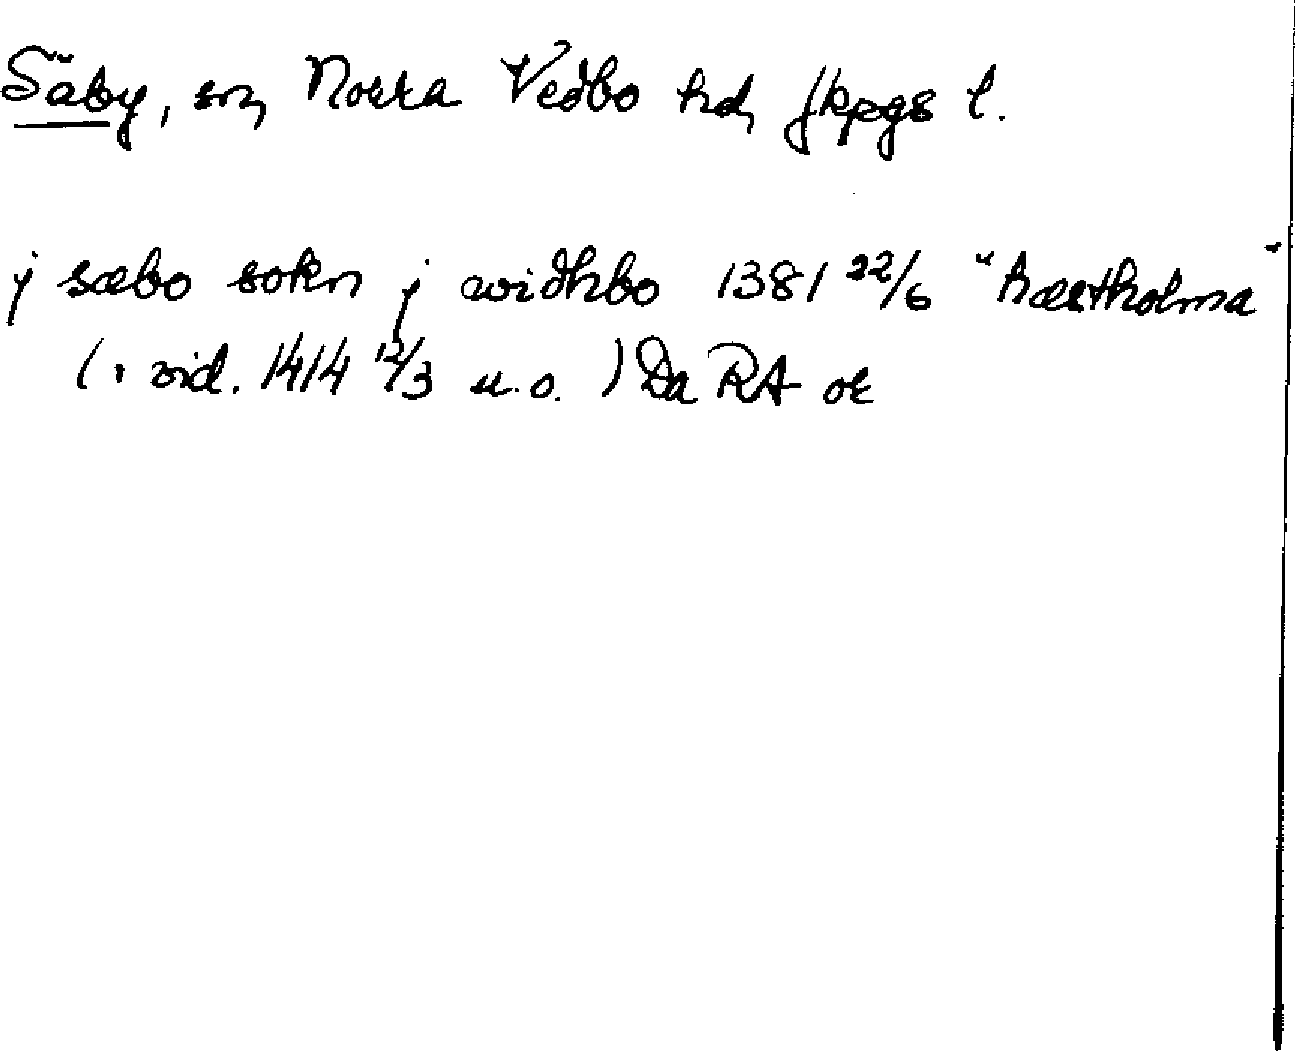 Säby, sn, Norra Vedbo hd, Jkpgs l.
j sæbo sokn j widhbo 1381 22/6 "hæstholma"
(i vid. 1414 12/3 u.o.) Da RA or